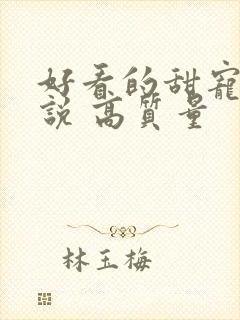 好看的甜宠
說 高質量
林玉梅